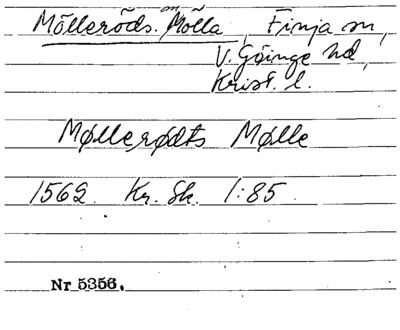 Mölleröds Mölla, Finja sn,
V. Göinge hd,
Krist. l.
Møllerødts Mølle
1562. Kr. Sk. 1:85.
Nr 5356.